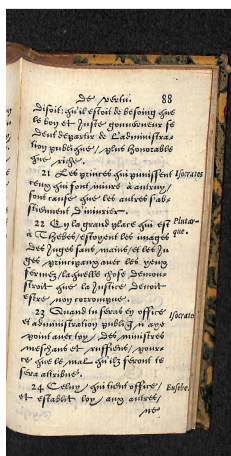 De vertu. 88
disoit: qu'il estoit de besoing que
le bon et Juste gouverneur se
deut departir de L'administra-
tion publique / plus honorable
que riche.
21 Les princes qui punissent Isocrates
ceux qui font iniure à autruy /
font cause que les autres s'abs-
tiennent d'iniurier.
22 En la grand place qui est Plutar-
à Thebes / estoyent les images que.
des Juges sans mains / et les Ju-
ges principaux avec les yeux
fermez / laquelle chose demons-
troit que la Justice devoit
estre / non corrompue.
23 Quand tu seras en office Isocrate
et administration publiq / n'aye
point avec toy / des ministres
meschans et ruffiens / pour-
ce que le mal qu'ilz feront te
sera attribué.
24 Celuy / qui tient office / Eusebe.
et establit loy / aux autres /
ne